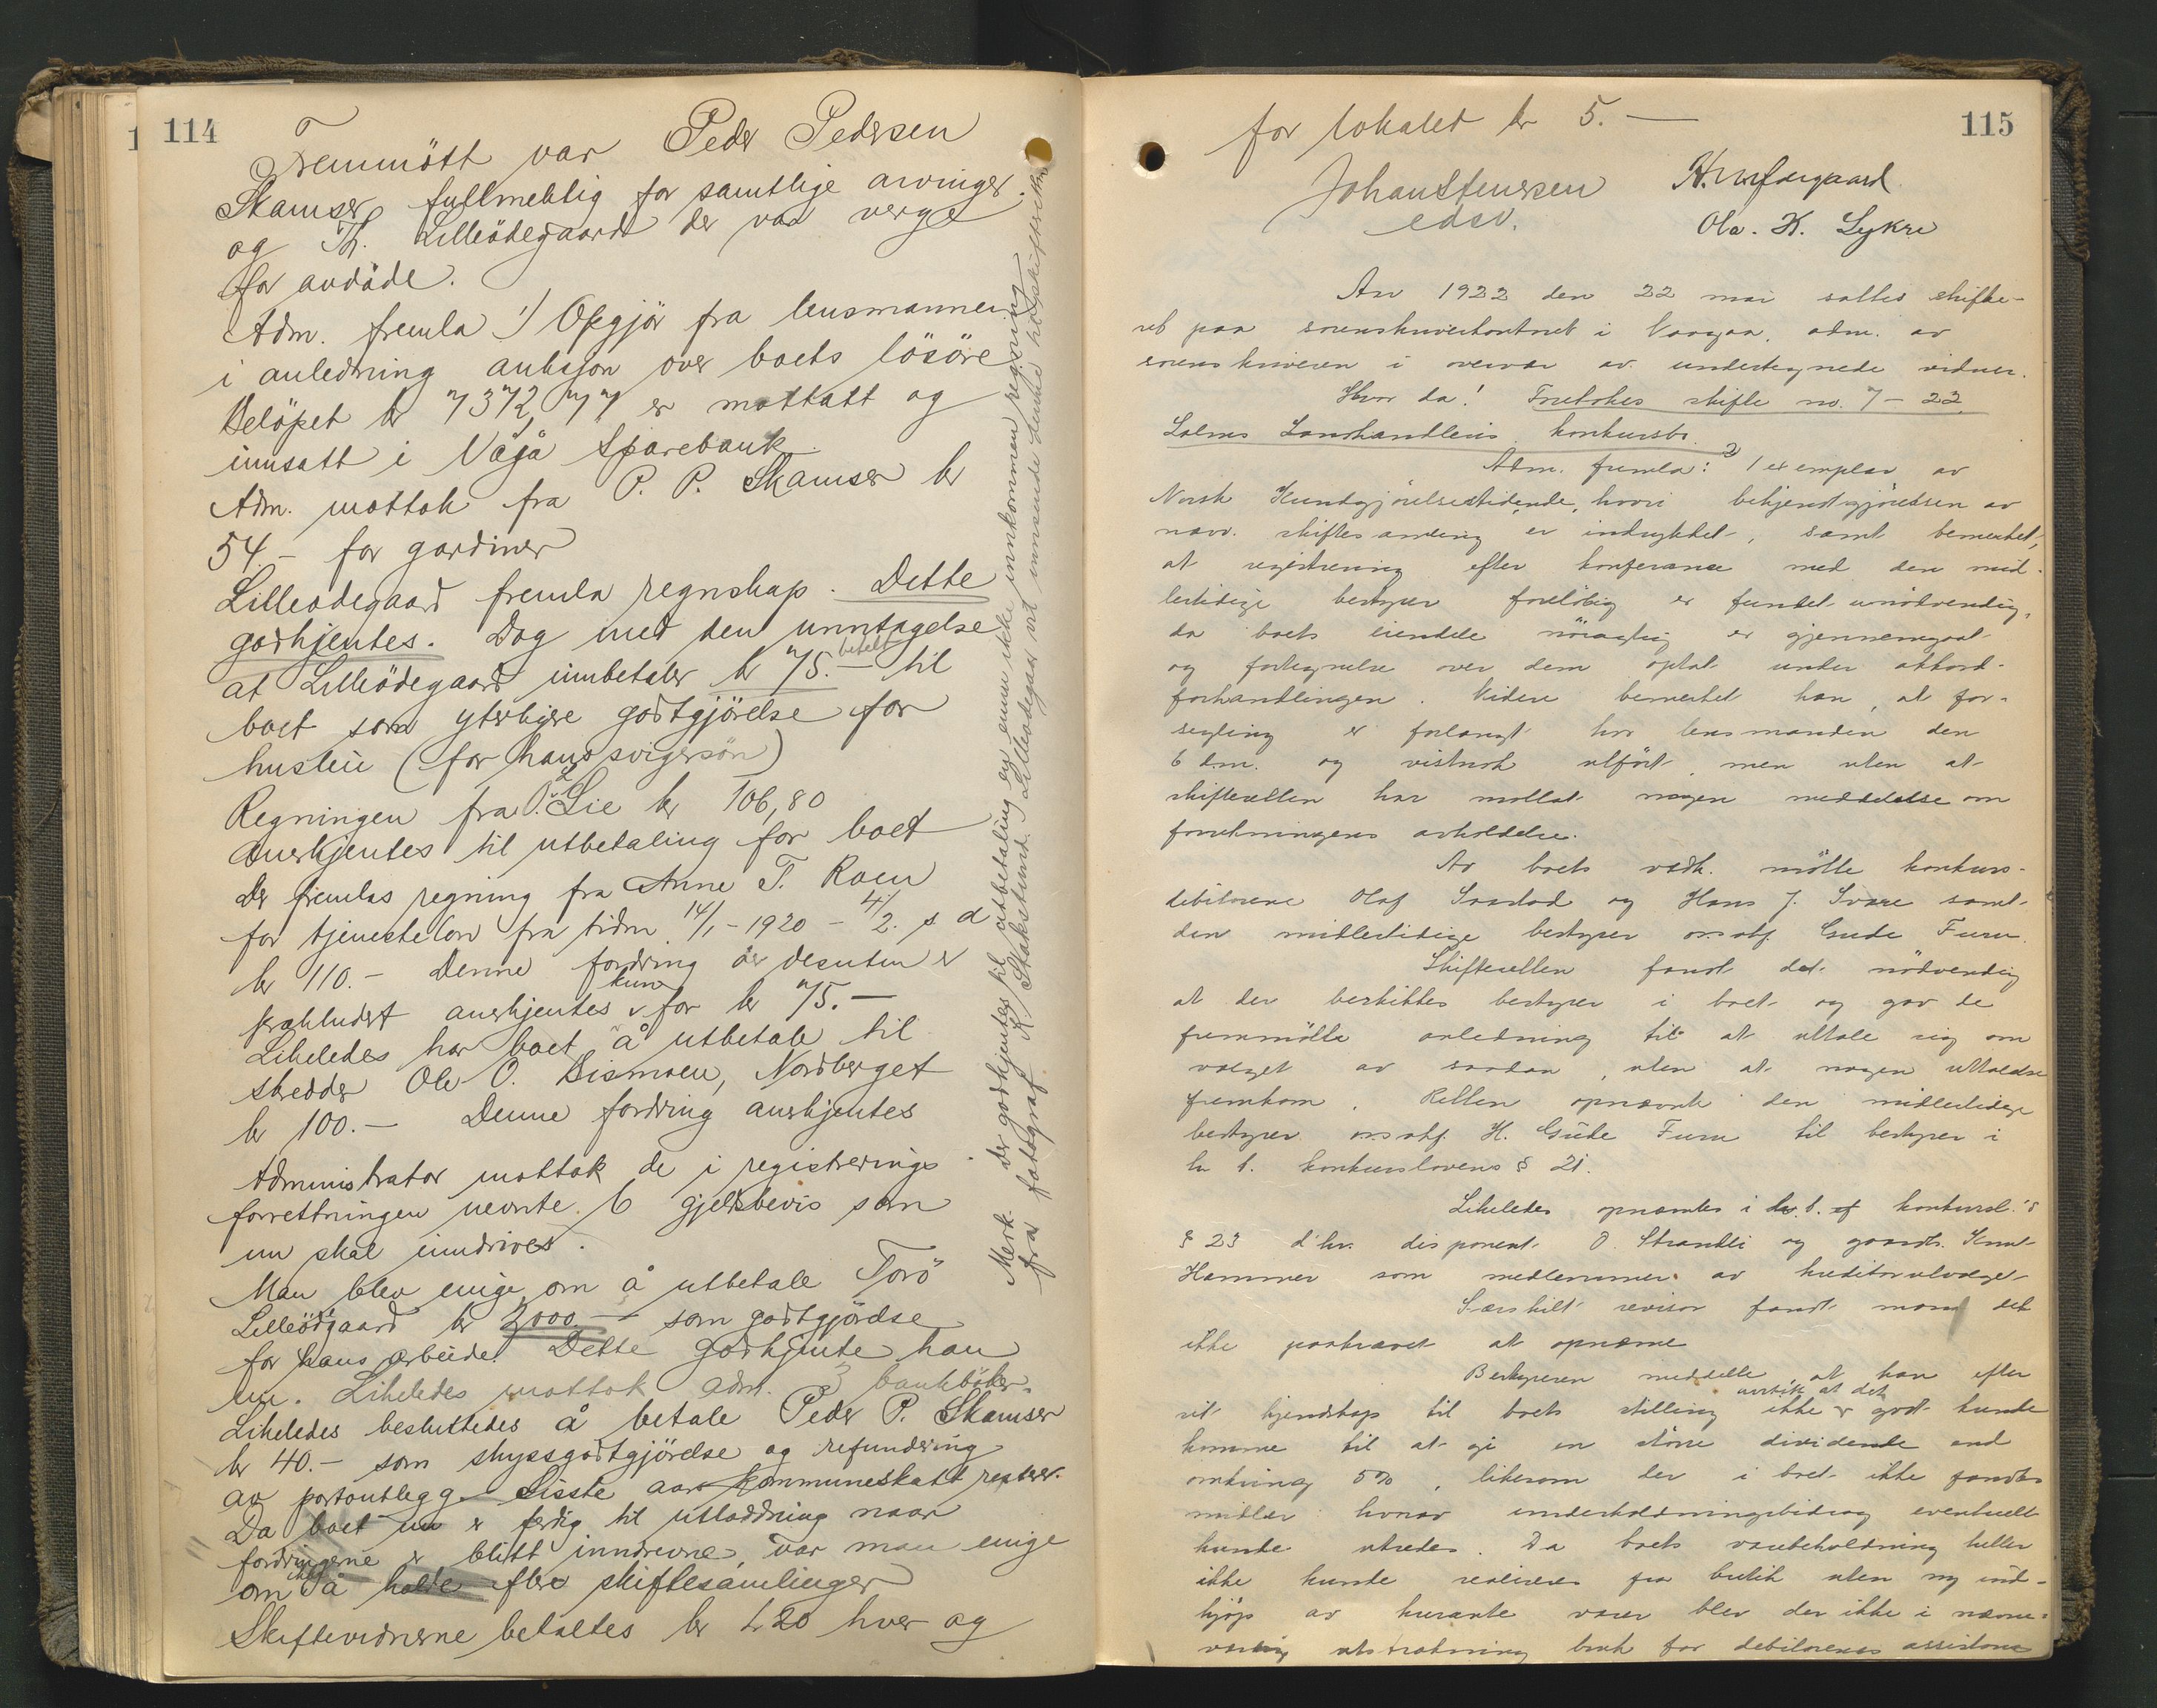 114
Fremmött var Peder Pedersen
Skamser fullmektig for samtlige arvinger.
og Th. Lilleödegaard der var verge
for avdöde.
Adm. fremla 1) Opgjör fra lensmannen
i anledning auksjon over boets lösöre
Belöpet kr 7372,77 er mottatt og
innsatt i Vågå Sparebank.
Adm. mottok fra P. P. Skamser kr
54 - for gardiner
Lilleödegaard fremla regnskap. Dette
godkjentes. Dog med den unntagelse
at Lilleödegaard innbetaler kr 75.- betalt til
boet som yterligere godtgjörelse for
husleie (for hans svigersön)
Regningen fra Lie kr 106,80
anerkjentes til utbetaling for boet
Der fremlas regning fra Anne T. Roen
for tjenestelön fra tidn 14/1 - 1920 - 4/2. s d
kr 110.- Denne fordring der desuten er
prekludert anerkjentes kun for kr 75.-
Likeledes har boet å utbetale til
skredder Ole O. Bismoen, Nordberget
kr 100.- Denne fordring anerkjentes
Administrator mottok de i registrerings-
forrettningen nevnte 6 gjeldsbevis som
nu skal inndrives.
Man blev enige om å utbetale Torö
Lilleödegaard kr 2000.- som godtgjörelse
for hans arbeide. Dette godkjente han
nu. Likeledes mottok adm. 3 bankböker.
Likeledes besluttedes å betale Peder P. Skamser
kr 40.- som skyssgodtgjörelse og refundering
av portoutlegg. Sisste aars kommuneskatt
Da boet nu er ferdig til utloddning naar
fordringene er blitt inndrevne, var man enige
om ikke å holde flere skiftesamlinger
Skiftevidnerne betaltes kr 4,20 hver og
Merk. Der godkjentes til utbetaling en ennu ikke innkommen regning
fra fotograf K. Stakstund. Lilleödegaar vil innsende denne til skifteretten
115
for lokalet kr 5.-
Johan Stenersen
edsv.
Ola. K. Lykre
Aar 1922 den 22 mai sattes skifte-
ret paa sorenskriverkontoret i Vaagaa, adm. av
sorenskriveren i overvær av undertegnede vidner.
Hvor da! Foretokes skifte no. 7 - 22
Lalms Landhandleris konkursbo.
Adm. fremla: 1 exemplar av
Norsk Kundgjörelsestidende, hvori bekjendtgjörelsen av
nærv. skiftesamling er indrykket, samt bemerket,
at registrering efter konferanse med den mid-
lertidige bestyrer forelöbig er fundet unödvendig,
da boets eiendele nöiagtig er gjennemgaat
og fortegnelse over dem optat under akkord-
forhandlingen. Videre bemerket han, at for-
segling er forlangt hos lensmanden den
6 dm. og vistnok utfört, men uten at
skifteretten har mottat nogen meddelelse om
forretningens avholdelse.
Av boets vedk. mötte konkurs-
debitorene Olaf Svastad og Hans J. Svare samt
den midlertidige bestyrer o.r.sakf. Gude Furu.
Skifteretten fandt det nödvendig
at der beskikkes bestyrer i boet og gav de
fremmötte anledning til at uttale sig om
valget av saadan, uten at nogen uttalelse
fremkom. Retten opnævnte den midlertidige
bestyrer o.r.sakf. H. Gude Furu til bestyrer i
h. t. konkurslovens § 21.
Likeledes opnævntes i h. t. konkursl.'s
§ 23 d'hr. disponent O. Strandli og gaardb. Knut
Hammer som medlemmer av kreditorutvalget
Særskilt revisor fandt man det
ikke paakrævet at opnævne
Bestyreren meddelte at han efter
sit kjendskap til boets stilling ikke godt kunde
komme til at gi en större dividende end
omkring 5%, likesom der i boet ikke fandtes
midler hvorav underholdningsbidrag eventuelt
kunde utredes. Da boets varebeholdning heller
ikke kunde realiseres fra butik uten ny ind-
kjöp av kurante varer blev der ikke i nævne-
værdig utstrækning bruk for debitorenes assistanse